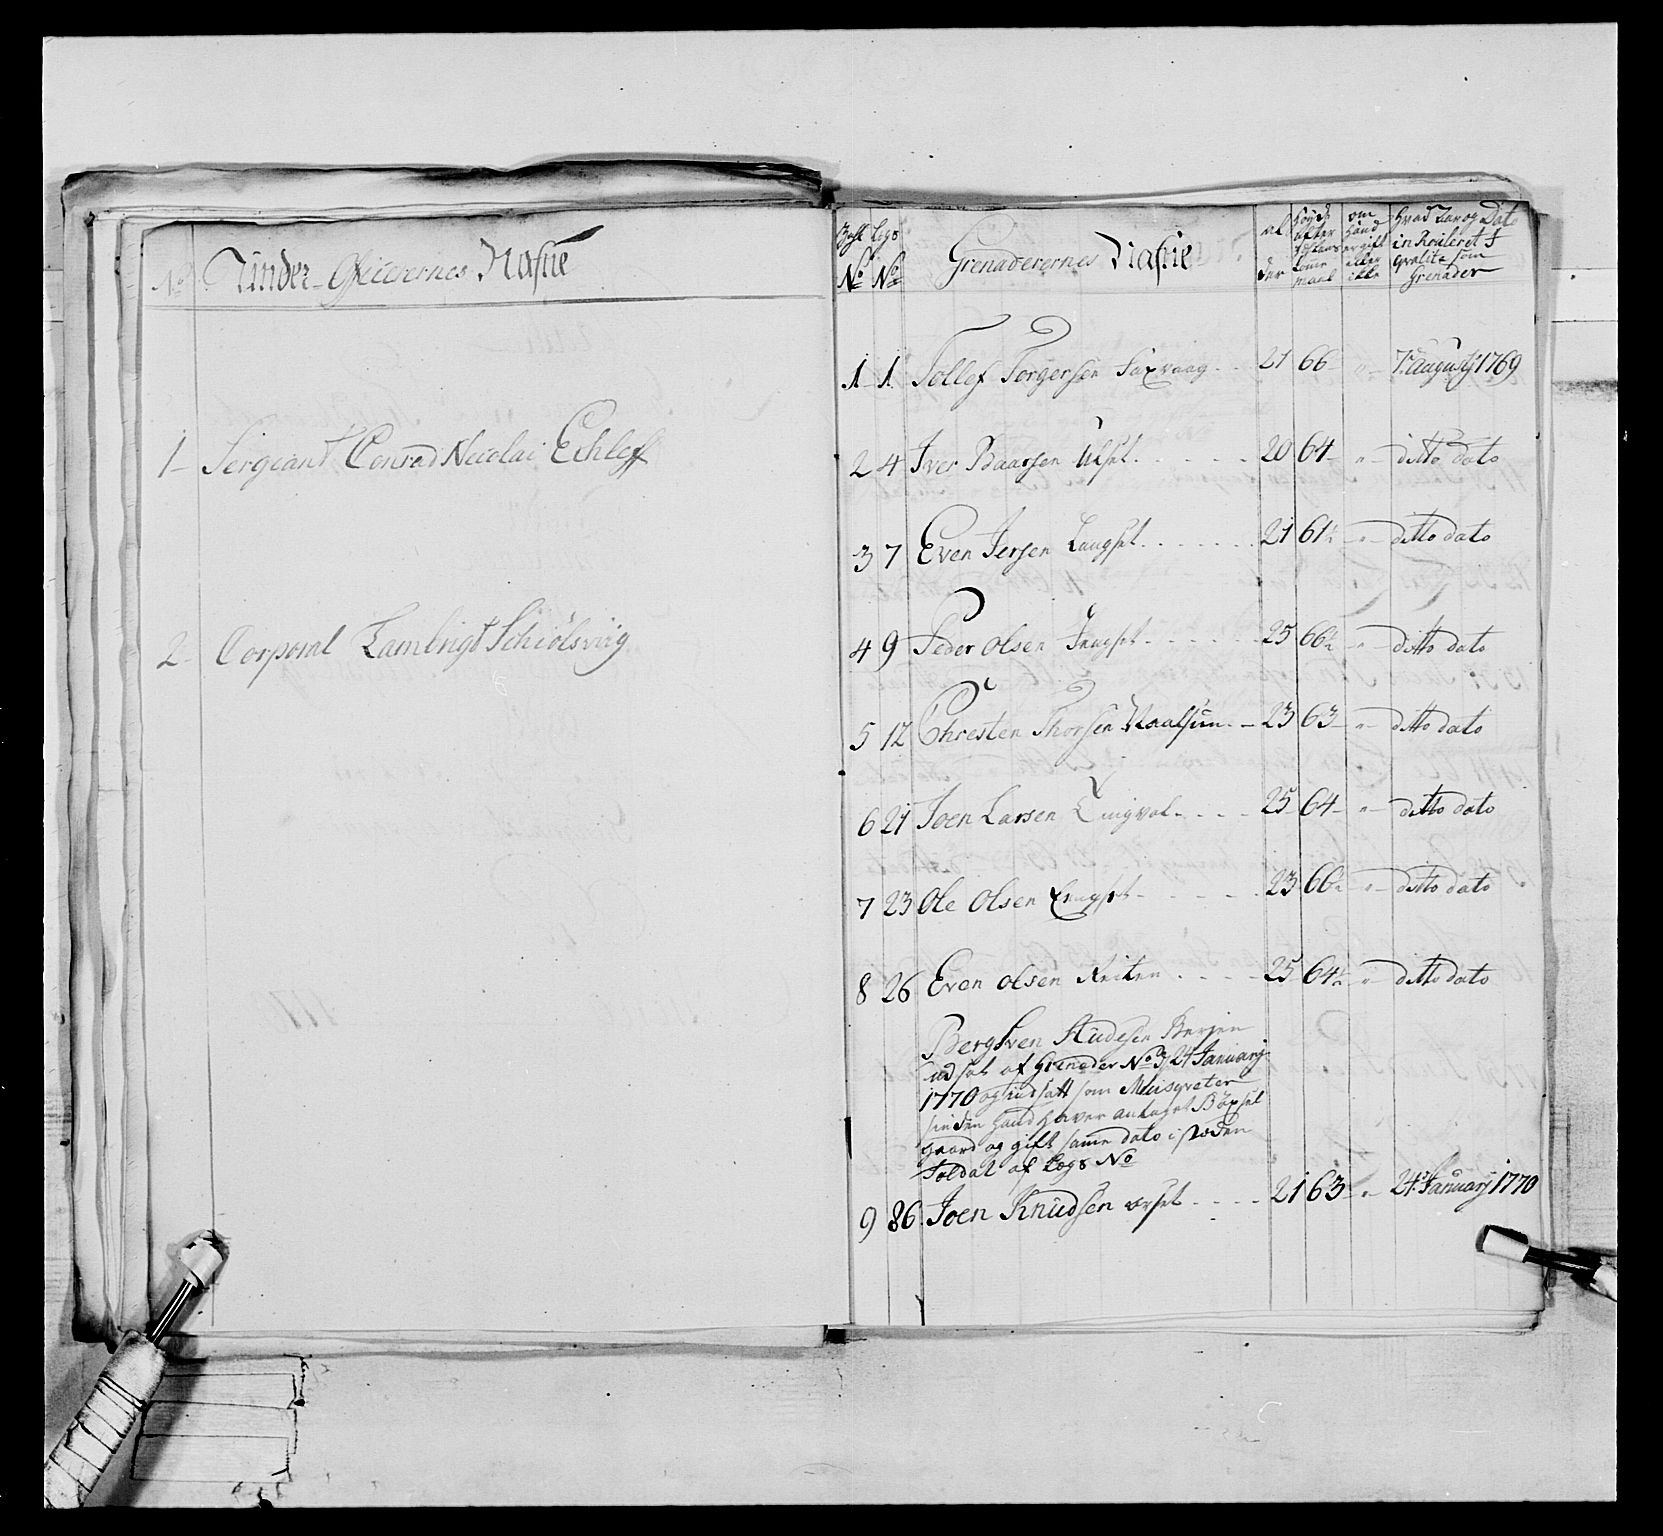 No Under-Officerernes Nafne
1 Sergeant Conrad Nicolai Echleff
2 Corporal Lambrigt Schiölsviig
No Logs No Grenaderernes Nafne al der om hand er gift eller ikke hvad Aar og Dato in Rouleret I qvalite som Grenader
1 1 Tollef Torgersen Saxvaag 21 66 " 7de augustj 1769
2 4 Iver Baarsen Ulset 20 64 " ditto dato
3 7 Even Iversen Langset 21 61½ " ditto dato
4 9 Peder Olsen 25 66½ " ditto dato
5 12 Christen Thorsen 23 63 " ditto dato
6 21 Joen Larsen 25 64 " ditto dato
7 23 Ole Olsen 23 66½ " ditto dato
8 26 Even Olsen 25 64½ " ditto dato
Bergsven
udsat af Grenader No 3/24 Januarj
1770 og indsatt som Musqveter
siden hand haver antaget Böxsel
gaard og gift samme dato i stæden
Soldat af Logs No
9 86 Joen Knudsen orset 21 63 " 24de Januarj 1770